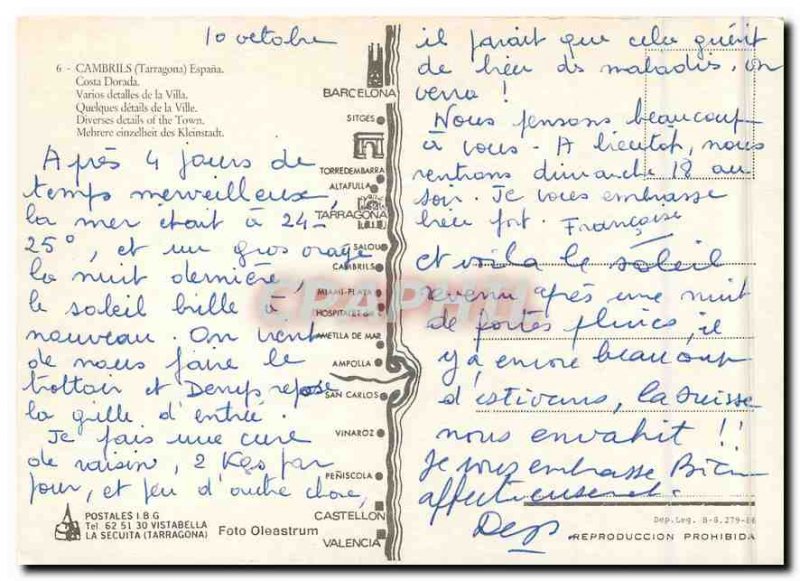 10 octobre
6 - CAMBRILS (Tarragona) España.
Costa Dorada.
Varios detalles de la Villa.
Quelques détails de la Ville.
Diverses details of the Town.
Mehrere einzelheit des Kleinstadt.
Après 4 jours de
temps merveilleux,
la mer était à 24-
25°, et un gros orage
la nuit dernière,
le soleil brille à
nouveau. On vient
de nous faire le
trottoir et Denys repose
la grille d'entrée.
Je fais une cure
de raisin, 2 Kgs par
jour, et peu d'autre chose,
BARCELONA
SITGES
TORREDEMBARRA
ALTAFULLA
TARRAGONA
SALOU
CAMBRILS
MIAMI-PLAYA
HOSPITALET
AMETLLA DE MAR
AMPOLLA
SAN CARLOS
VINAROZ
PEÑISCOLA
CASTELLON
VALENCIA
il parait que cela guérit
de bien ds maladies. on
verra !
Nous pensons beaucoup
à vous - A bientôt, nous
rentrons dimanche 18 au
soir. Je vous embrasse
bien fort. Françoise
et voila le soleil
revenu après une nuit
de fortes pluies, il
y a encore beaucoup
d'estivans, la suisse
nous envahit !!
Je vous embrasse Bien
affectueusement.
POSTALES I.B.G
Tel 62 51 30 VISTABELLA
LA SECUITA (TARRAGONA)
Foto Oleastrum
Dep. Leg. B-8.279-86
REPRODUCCION PROHIBIDA
CPAPHIL